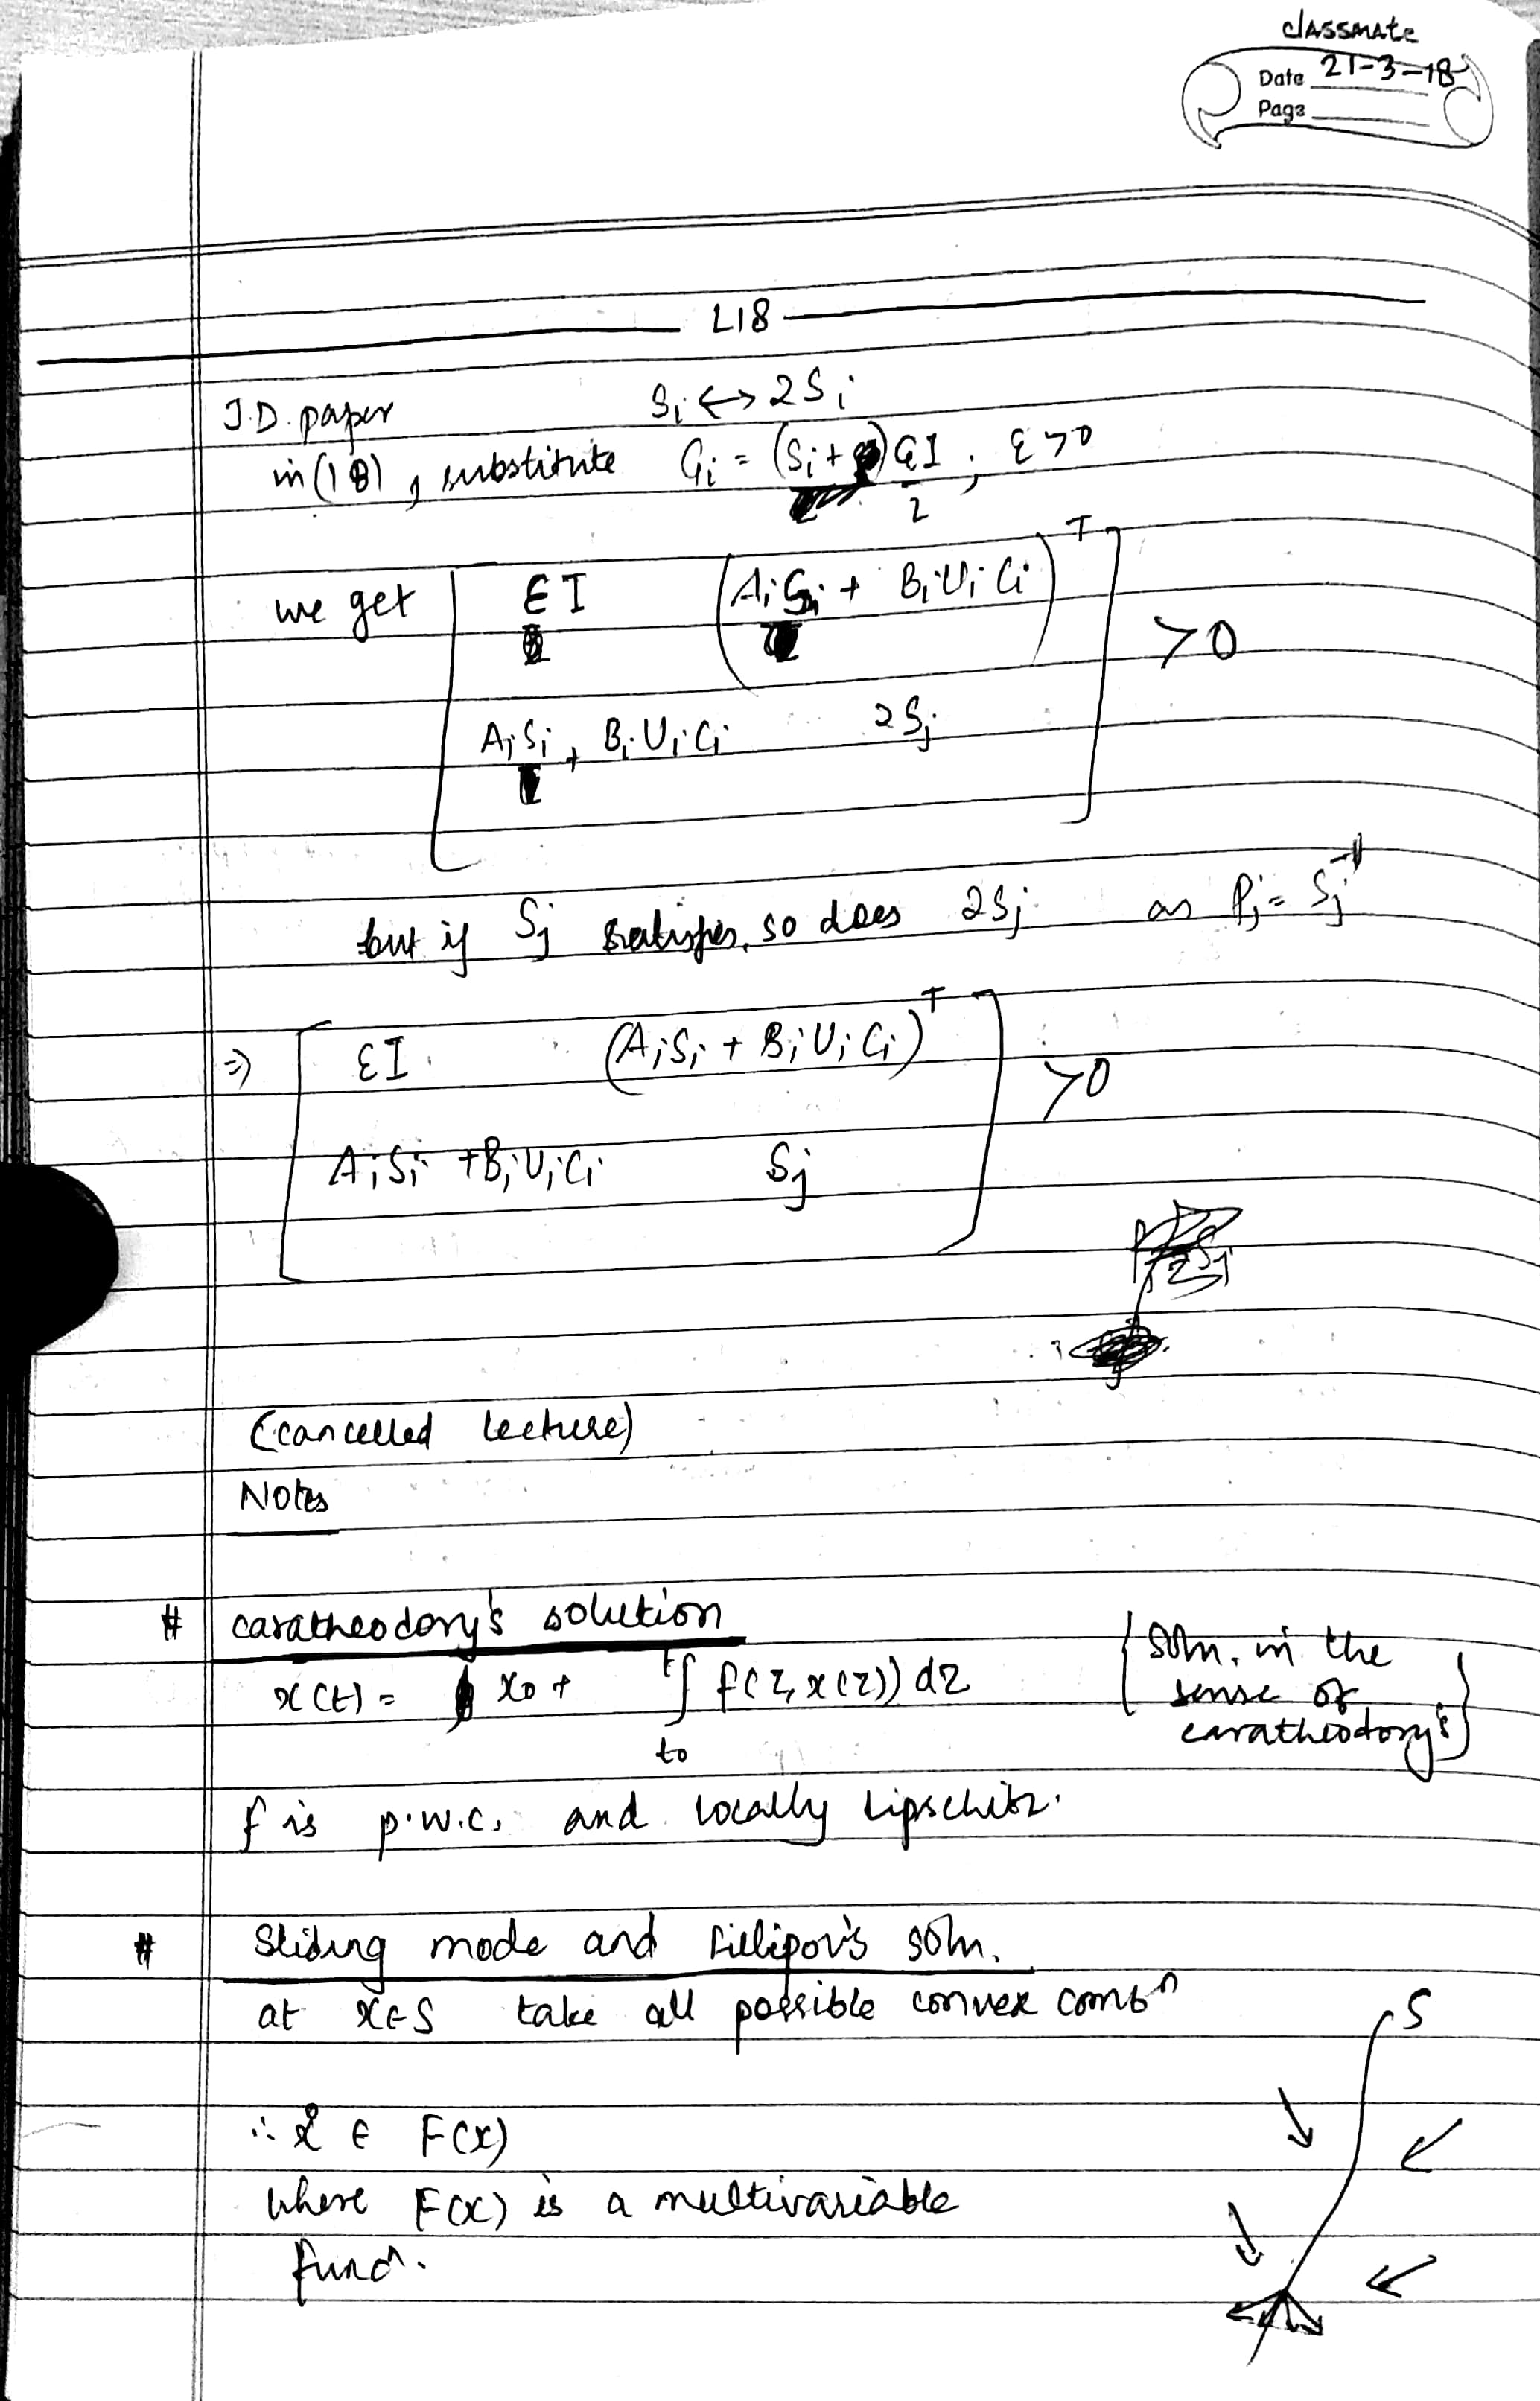 classmate
Date 21-3-18
Page
L18
J.D. paper Si ↔ 2Si
in (18), substitute Gi = (Si + ) εI/2, ε > 0
we get [ εI (AiSi + BiUiCi)^T
AiSi + BiUiCi 2Sj ] > 0
but if Sj satisfies, so does 2Sj as Pj = Sj^-1
⇒ [ εI (AiSi + BiUiCi)^T
AiSi + BiUiCi Sj ] > 0
(cancelled lecture)
Notes
# caratheodory's solution
x(t) = x0 + ∫_{t0}^{t} f(z, x(z)) dz { soln. in the sense of caratheodory's }
f is p.w.c. and locally Lipschitz.
# Sliding mode and Fillipov's soln.
at x∈S take all possible convex combⁿ
S
∴ ẋ ∈ F(x)
where F(x) is a multivariable
funcⁿ.